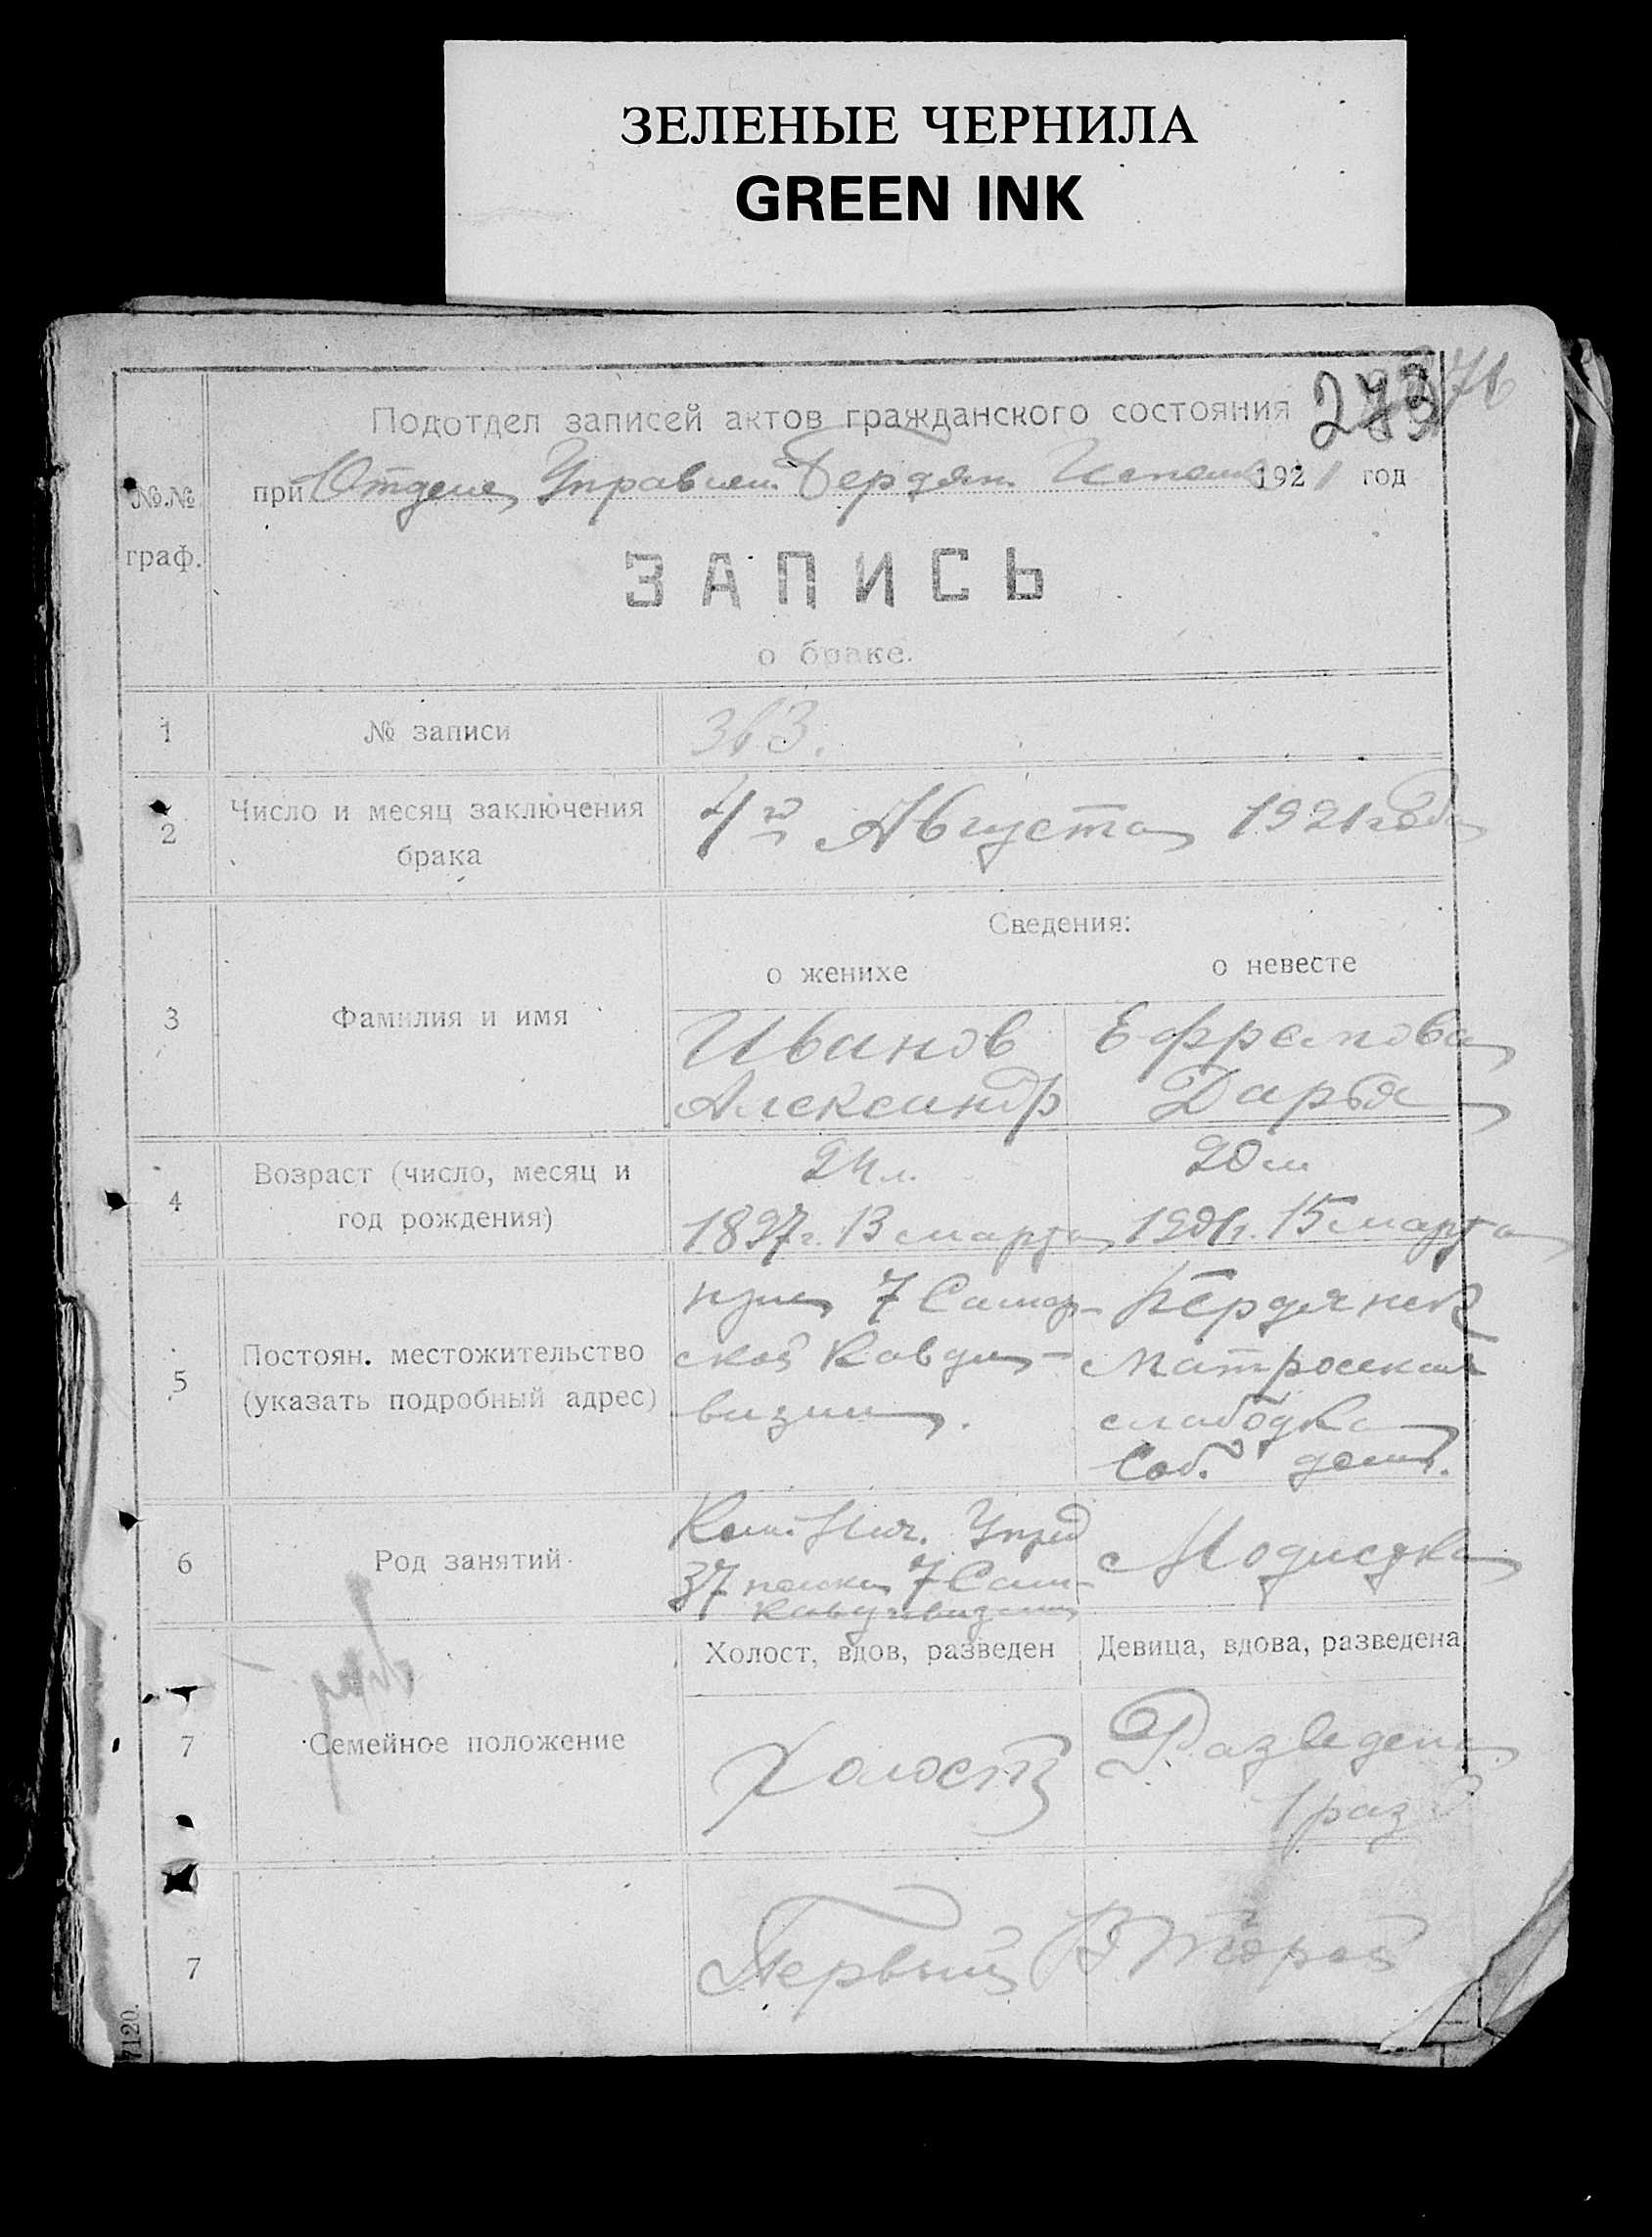 ЗЕЛЕНЫЕ ЧЕРНИЛА
GREEN INK
Подотдел записей актов гражданского состояния
№.№ граф.
при Отделе Управлен. Бердян. 1921 год
ЗАПИСЬ
о браке.
1 № записи 363.
2 Число и месяц заключения брака
4го Августа 1921 года
Сведения:
о женихе о невесте
3 Фамилия и имя
Иванов
Александр
Ефремова
Дарья
4 Возраст (число, месяц и год рождения)
24 л.
1897 г. 13 марта
20 л.
1901 г. 15 марта
5 Постоян. местожительство
(указать подробный адрес)
7 Самар-
ской Кавди-
визии.
Бердянск
Матросская
слабодка
Соб. дом.
6 Род занятий
37 полка 7 Сам.
Кавдивизии
Модистка
Холост, вдов, разведен Девица, вдова, разведена
7 Семейное положение
Холост
Разведена
1 раз
7
Первый Второй
7120.